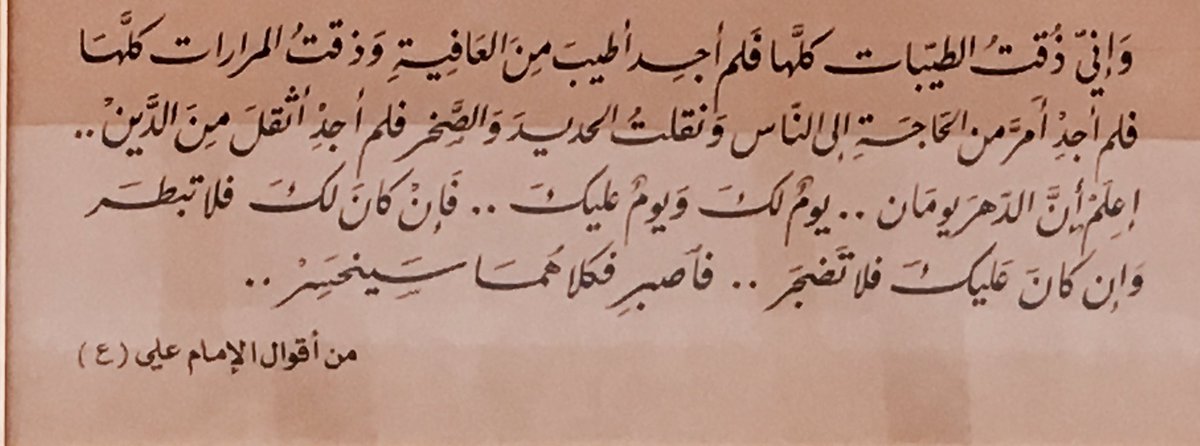 وَإنيّ ذُقتُ الطيّبات كلَّها فَلم أجِد أطيبَ مِنَ العَافِيةِ وَذقتُ المرارات كلَّهَا
فلم أجِدْ أمَرَّ من الحَاجَةِ إلى النَّاس وَنقلتُ الحديدَ وَالصَّخر فلم أجِدْ أثقلَ مِنَ الدَّينْ ..
إعلَمْ أنَّ الدَّهرَ يومَان .. يومٌ لكَ وَيومٌ عليكَ .. فَإنْ كانَ لكَ فلا تبطرَ
وَإن كانَ عَليكَ فلا تَّضجَرَ .. فأصبرِ فكلاهُمَا سَينحَسِرْ ..
من أقوال الإمام علي (ع)